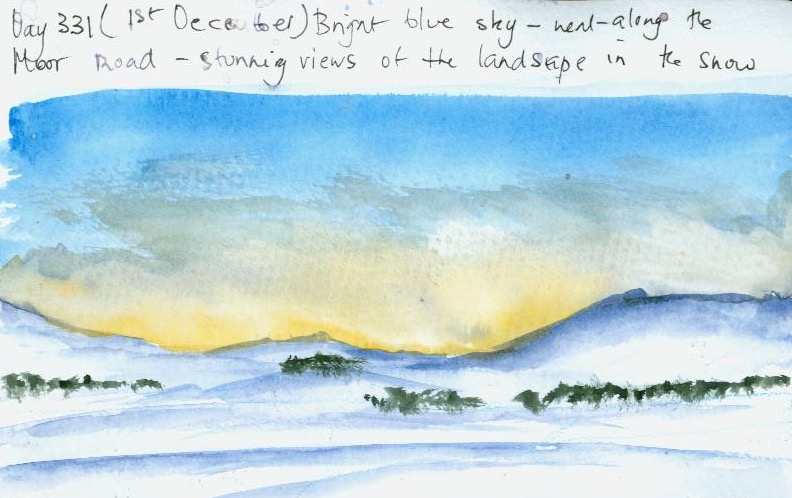 Day 331 (1st December) Bright blue sky - went along the
Moor Road - stunnig views of the landscape in the snow